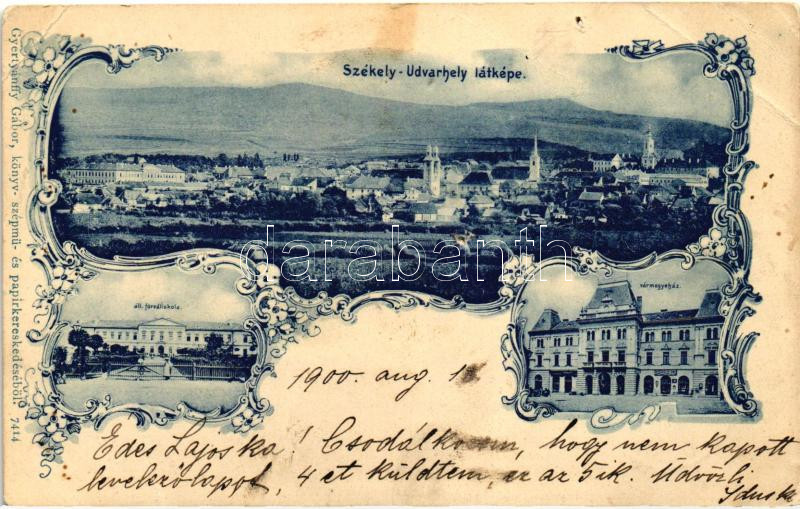 Székely - Udvarhely látképe.
áll. főreáliskola.
vármegyeház.
Gyertyánffy Gábor, könyv- szépmű- és papirkereskedéséből. 7414
darabanth
1900. aug. 1
Édes Lajoska! Csodálkozom, hogy nem kapott
levelezőlapot, 4 et küldtem, ez az 5ik. Üdvözli
Iduska